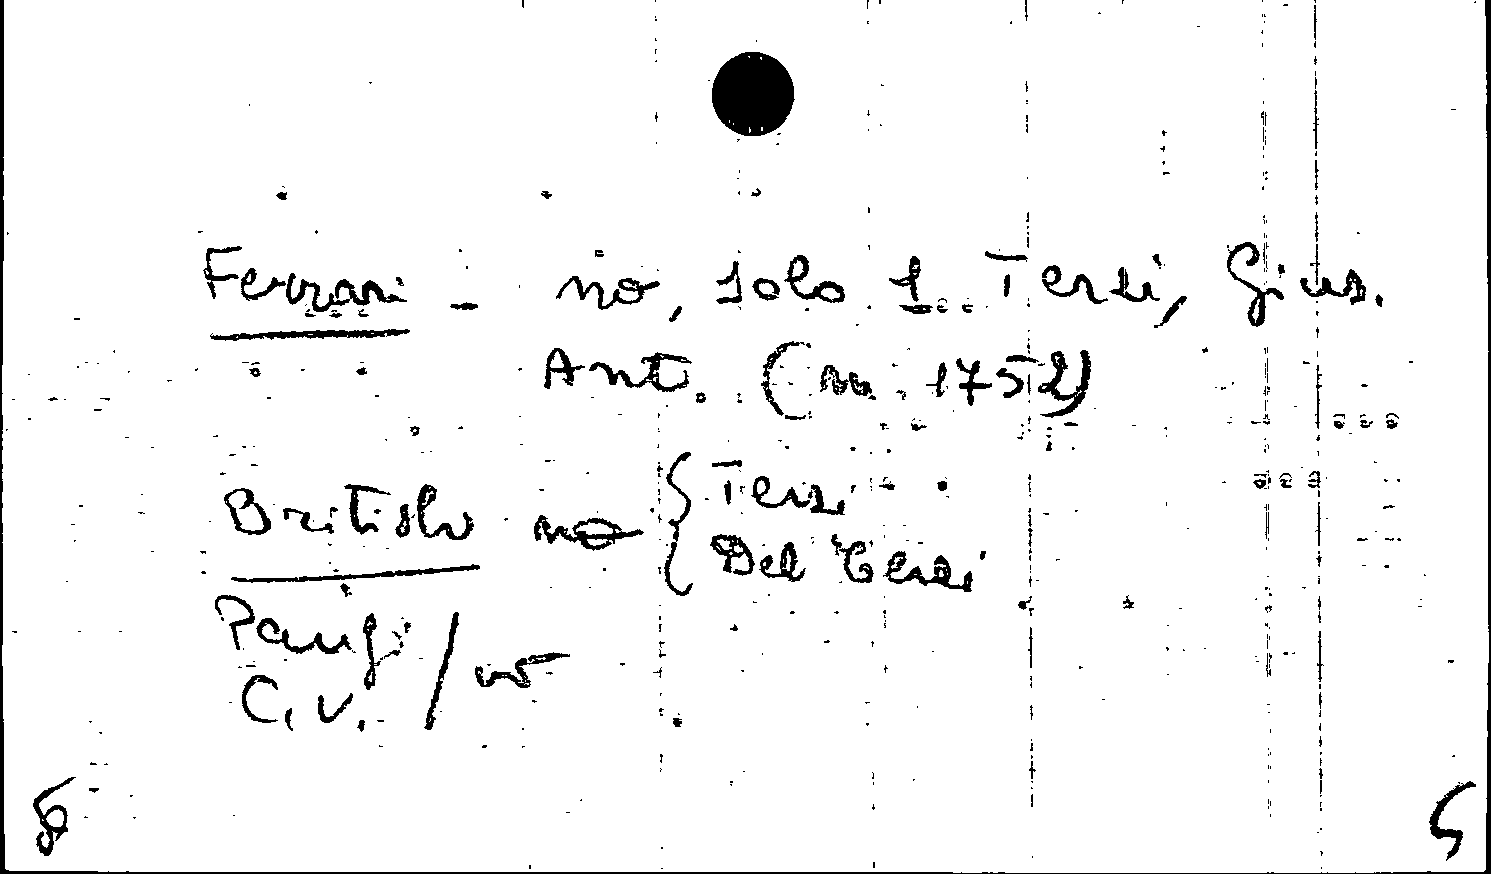 Ferrari - no, solo 1 Terzi, Gius.
Ant. (m. 1752)
British no { Terzi
Del Terzi
Parigi / no
C. V.
5